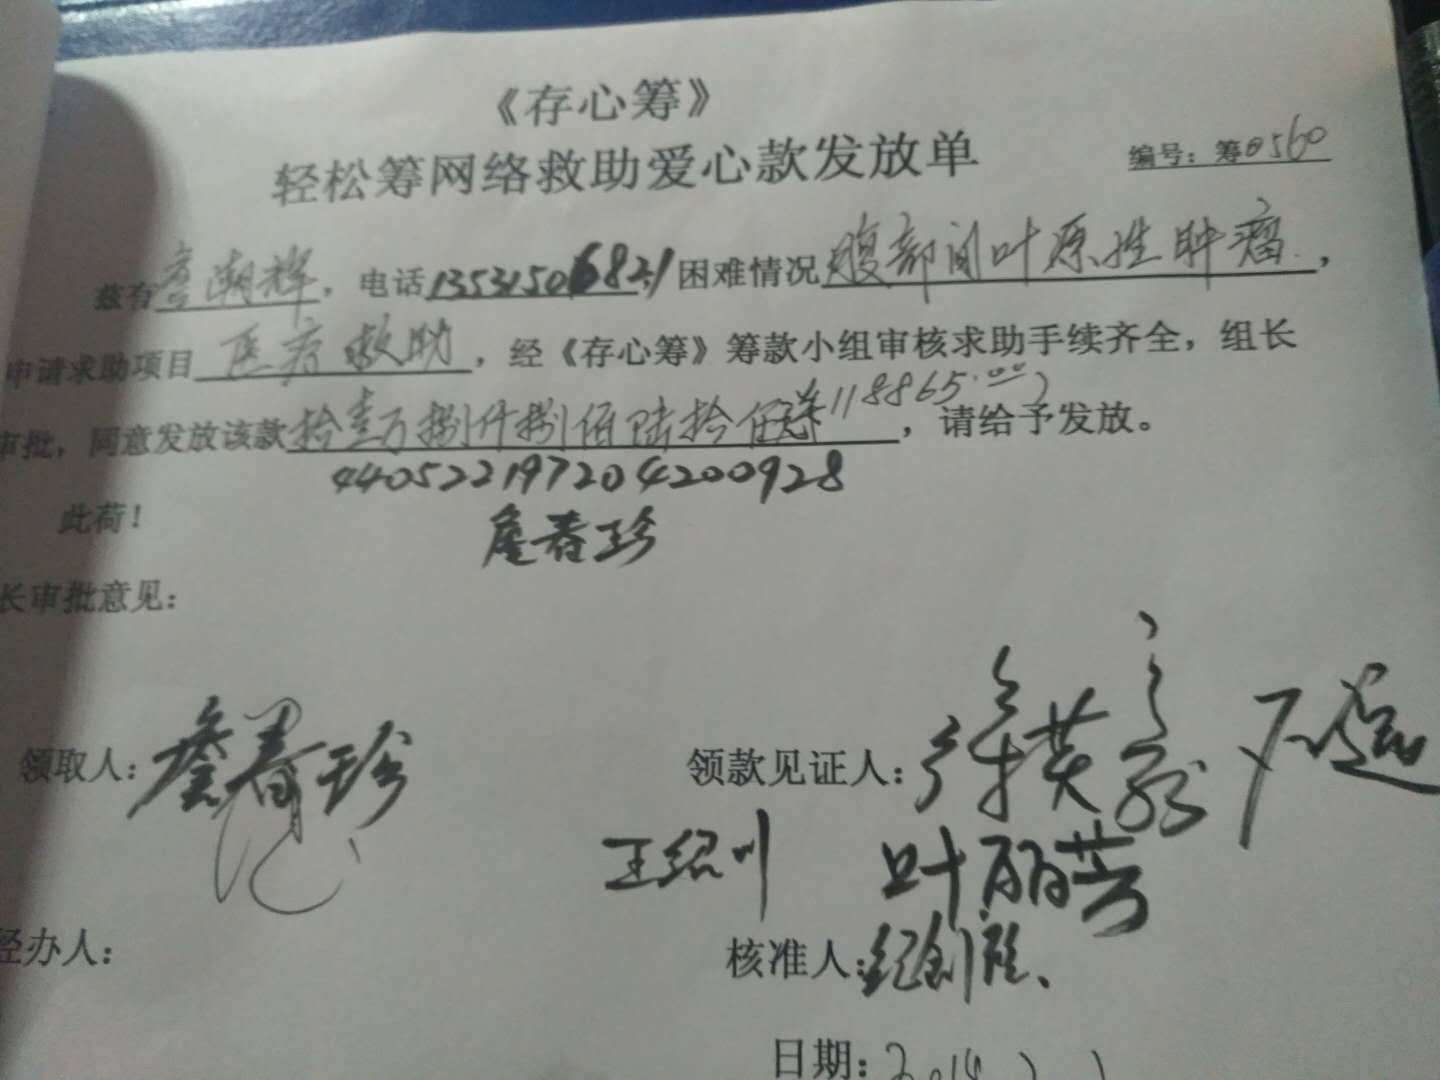 《存心筹》
轻松筹网络救助爱心款发放单
编号：筹0560
兹有詹潮辉，电话困难情况腹部间叶原性肿瘤，
申请求助项目医疗救助，经《存心筹》筹款小组审核求助手续齐全，组长
审批，同意发放该款拾壹万捌仟捌佰陆拾伍 118865.00），请给予发放。
440522197204200928
此荷！
詹春珍
长审批意见：
领取人：詹春珍
领款见证人：
王绍川 叶丽芳
经办人：
核准人：
日期：